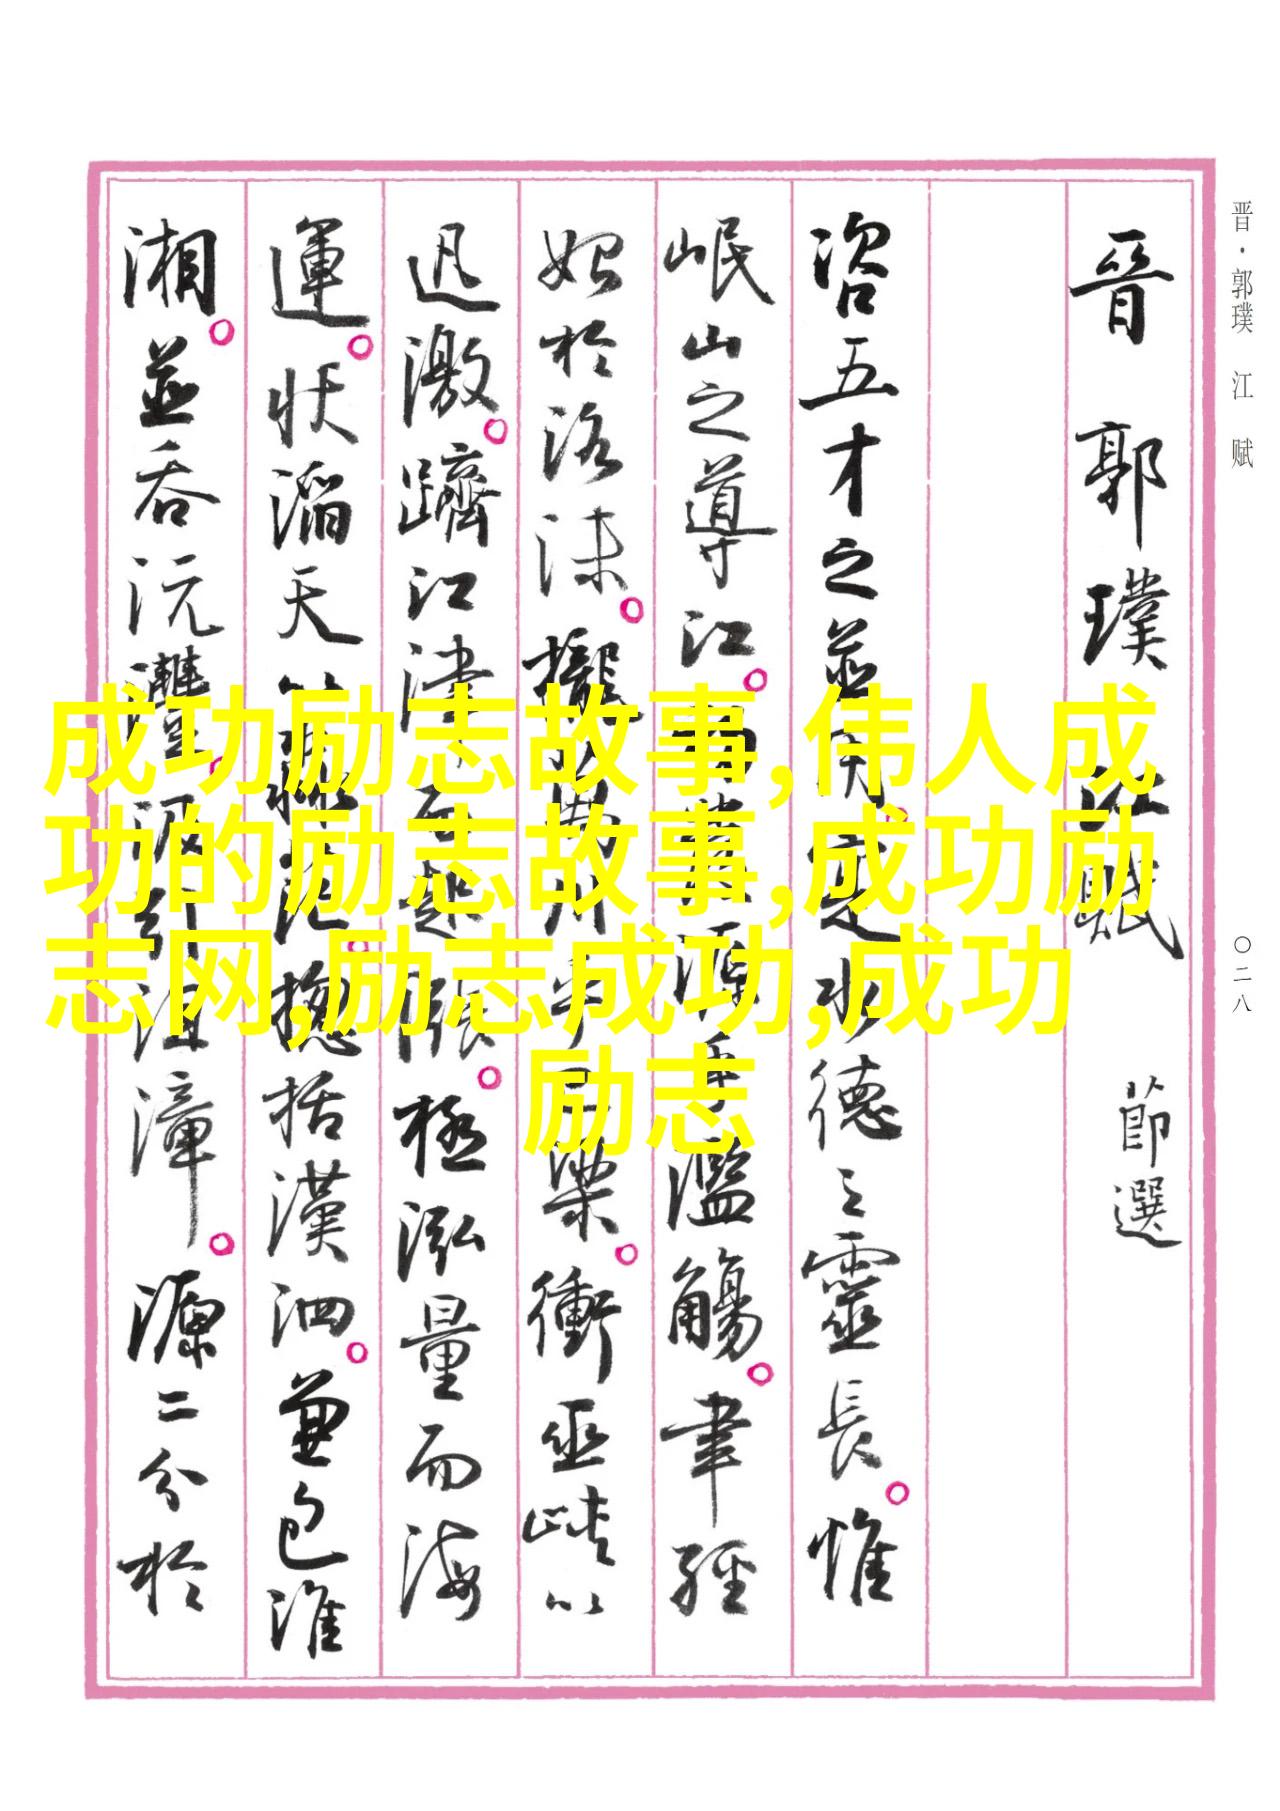 晋·郭璞 江 赋
〇二八
晉 郭 璞 江 賦 節選
咨五才之並用寔水德之靈長惟
岷山之導江初發源乎濫觴聿經
始於洛沬攏萬川乎巴梁衝巫峽以
迅激躋江津而起漲極泓量而海
運狀滔天以淼茫揔括漢泗兼包淮
湘並吞沅灃汲引沮漳源二分於
成功励志故事,伟人成
功的励志故事,成功励
志网,励志成功,成功
励志